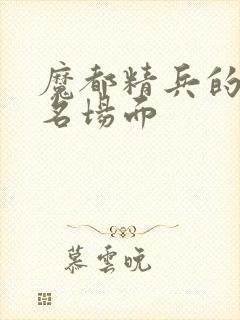 魔都精兵的
名場面
慕雲晚